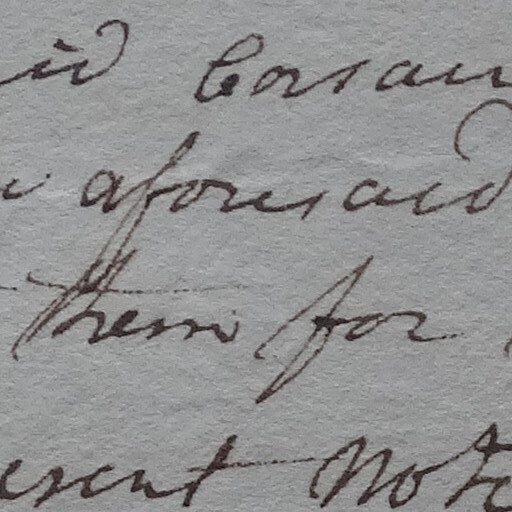 id Corsan
aforesaid
them for
esent Note